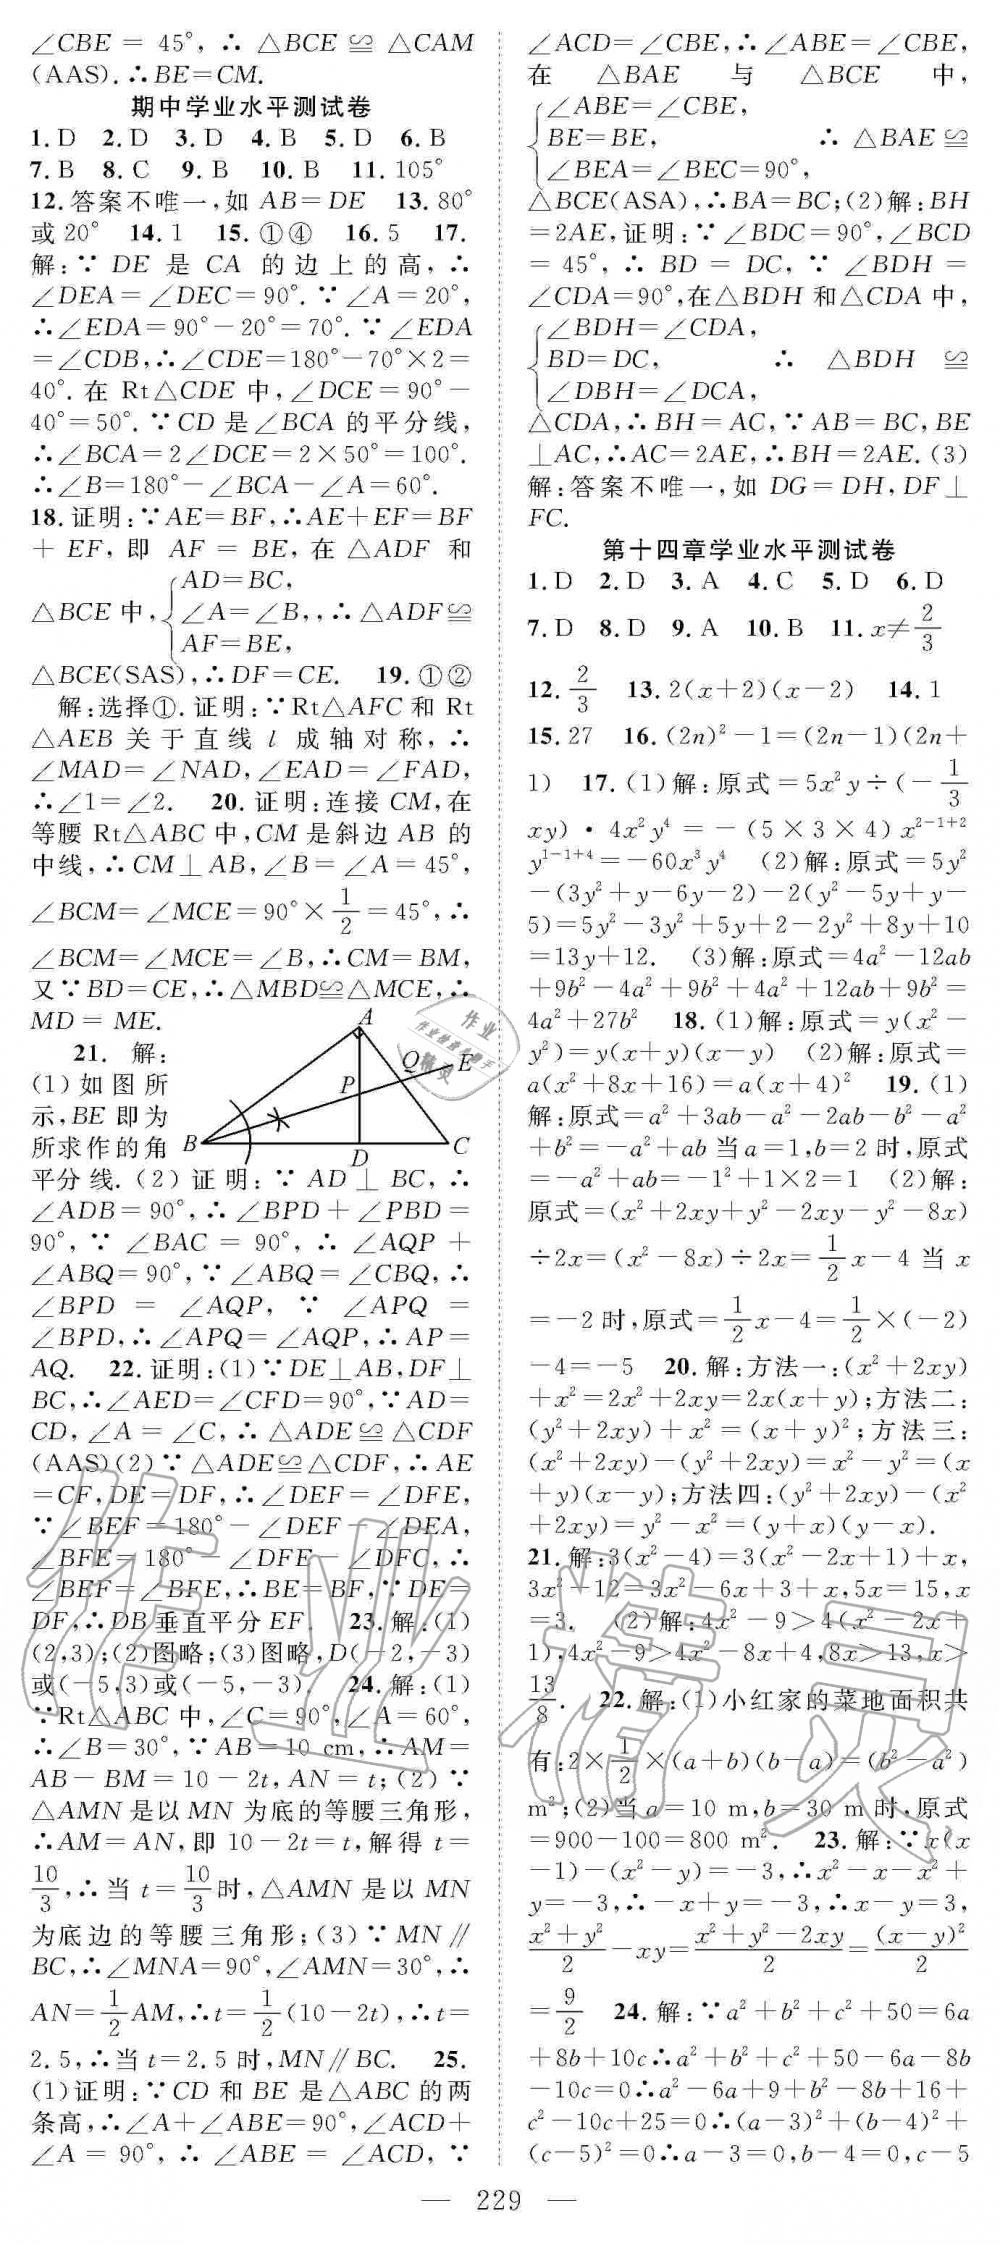 ∠CBE = 45°, ∴ △BCE ≌ △CAM
(AAS). ∴BE=CM.
期中学业水平测试卷
1.D 2.D 3.D 4.B 5.D 6.B
7.B 8.C 9.B 10.B 11.105°
12.答案不唯一,如 AB=DE 13.80°
或20° 14.1 15.①④ 16.5 17.
解:∵ DE 是 CA 的边上的高,∴
∠DEA=∠DEC=90°. ∵∠A=20°,
∴∠EDA=90°-20°=70°. ∵∠EDA
=∠CDB,∴∠CDE=180°-70°×2=
40°. 在 Rt△CDE 中,∠DCE=90°-
40°=50°. ∵CD 是∠BCA 的平分线,
∴∠BCA=2∠DCE=2×50°=100°.
∴∠B=180°-∠BCA-∠A=60°.
18.证明:∵AE=BF,∴AE+EF=BF
+ EF,即 AF = BE,在 △ADF 和
△BCE中,{AD=BC,
∠A=∠B,,∴△ADF≌
AF=BE,
△BCE(SAS),∴DF=CE. 19.①②
解:选择①. 证明:∵Rt△AFC 和 Rt
△AEB 关于直线 l 成轴对称,∴
∠MAD=∠NAD,∠EAD=∠FAD,
∴∠1=∠2. 20.证明:连接 CM,在
等腰 Rt△ABC 中,CM 是斜边 AB 的
中线,∴CM⊥AB,∠B=∠A=45°,
∠BCM=∠MCE=90°×1/2=45°,∴
∠BCM=∠MCE=∠B,∴CM=BM,
又∵BD=CE,∴△MBD≌△MCE,∴
MD=ME.
21. 解:
(1)如图所
示,BE 即为
所求作的角
A
Q
E
P
B
D
C
平分线. (2)证明:∵ AD⊥BC,∴
∠ADB=90°,∴∠BPD+∠PBD=
90°,∵ ∠BAC = 90°,∴ ∠AQP +
∠ABQ=90°,∵∠ABQ=∠CBQ,∴
∠BPD = ∠AQP,∵ ∠APQ =
∠BPD,∴∠APQ=∠AQP,∴AP=
AQ. 22.证明:(1)∵DE⊥AB,DF⊥
BC,∴∠AED=∠CFD=90°,∵AD=
CD,∠A=∠C,∴△ADE≌△CDF
(AAS)(2)∵△ADE≌△CDF,∴AE
=CF,DE=DF,∴∠DEF=∠DFE,
∵∠BEF=180°-∠DEF-∠DEA,
∠BFE=180°-∠DFE-∠DFC,∴
∠BEF=∠BFE,∴BE=BF,∵DE=
DF,∴DB垂直平分 EF. 23.解:(1)
(2,3);(2)图略;(3)图略,D(-2,-3)
或(-5,3)或(-5,-3). 24.解:(1)
∵Rt△ABC 中,∠C=90°,∠A=60°,
∴∠B=30°,∵AB=10 cm,∴AM=
AB-BM=10-2t,AN=t;(2)∵
△AMN是以 MN 为底的等腰三角形,
∴AM=AN,即 10-2t=t,解得 t=
10/3,∴当 t=10/3时,△AMN 是以 MN
为底边的等腰三角形;(3)∵MN∥
BC,∴∠MNA=90°,∠AMN=30°,∴
AN=1/2AM,∴t=1/2(10-2t),∴t=
2.5,∴当 t=2.5 时,MN∥BC. 25.
(1)证明:∵CD 和 BE 是△ABC 的两
条高,∴∠A+∠ABE=90°,∠ACD+
∠A = 90°,∴ ∠ABE = ∠ACD,∵
∠ACD=∠CBE,∴∠ABE=∠CBE,
在 △BAE 与 △BCE 中,
{∠ABE=∠CBE,
BE=BE, ∴△BAE≌
∠BEA=∠BEC=90°,
△BCE(ASA),∴BA=BC;(2)解:BH
=2AE,证明:∵∠BDC=90°,∠BCD
= 45°,∴ BD = DC,∵ ∠BDH =
∠CDA=90°,在△BDH 和△CDA 中,
{∠BDH=∠CDA,
BD=DC, ∴ △BDH ≌
∠DBH=∠DCA,
△CDA,∴BH=AC,∵AB=BC,BE
⊥AC,∴AC=2AE,∴BH=2AE. (3)
解:答案不唯一,如 DG=DH,DF⊥
FC.
第十四章学业水平测试卷
1.D 2.D 3.A 4.C 5.D 6.D
7.D 8.D 9.A 10.B 11.x≠2/3
12.2/3 13.2(x+2)(x-2) 14.1
15.27 16.(2n)²-1=(2n-1)(2n+
1) 17.(1)解:原式=5x²y÷(-1/3
xy)·4x²y⁴=-(5×3×4)x²⁻¹⁺²
y¹⁻¹⁺⁴=-60x³y⁴ (2)解:原式=5y²
-(3y²+y-6y-2)-2(y²-5y+y-
5)=5y²-3y²+5y+2-2y²+8y+10
=13y+12. (3)解:原式=4a²-12ab
+9b²-4a²+9b²+4a²+12ab+9b²=
4a²+27b² 18.(1)解:原式=y(x²-
y²)=y(x+y)(x-y) (2)解:原式=
a(x²+8x+16)=a(x+4)² 19.(1)
解:原式=a²+3ab-a²-2ab-b²-a²
+b²=-a²+ab当 a=1,b=2 时,原式
=-a²+ab=-1²+1×2=1 (2)解:
原式=(x²+2xy+y²-2xy-y²-8x)
÷2x=(x²-8x)÷2x=1/2x-4 当 x
=-2时,原式=1/2x-4=1/2×(-2)
-4=-5 20.解:方法一:(x²+2xy)
+x²=2x²+2xy=2x(x+y);方法二:
(y²+2xy)+x²=(x+y)²;方法三:
(x²+2xy)-(y²+2xy)=x²-y²=(x
+y)(x-y);方法四:(y²+2xy)-(x²
+2xy)=y²-x²=(y+x)(y-x).
21.解:3(x²-4)=3(x²-2x+1)+x,
3x²-12=3x²-6x+3+x,5x=15,x
=3. (2)解:4x²-9>4(x²-2x+
1),4x²-9>4x²-8x+4,8x>13,x>
13/8. 22.解:(1)小红家的菜地面积共
有:2×1/2×(a+b)(b-a)=(b²-a²)
m²;(2)当 a=10 m,b=30 m时,原式
=900-100=800 m². 23.解:∵x(x
-1)-(x²-y)=-3,∴x²-x-x²+
y=-3,∴-x+y=-3,∴x-y=3,
(x²+y²)/2-xy=(x²+y²-2xy)/2=(x-y)²/2
=9/2 24.解:∵a²+b²+c²+50=6a
+8b+10c∴a²+b²+c²+50-6a-8b
-10c=0∴a²-6a+9+b²-8b+16+
c²-10c+25=0∴(a-3)²+(b-4)²+
(c-5)²=0∴a-3=0,b-4=0,c-5
— 229 —
作业精灵